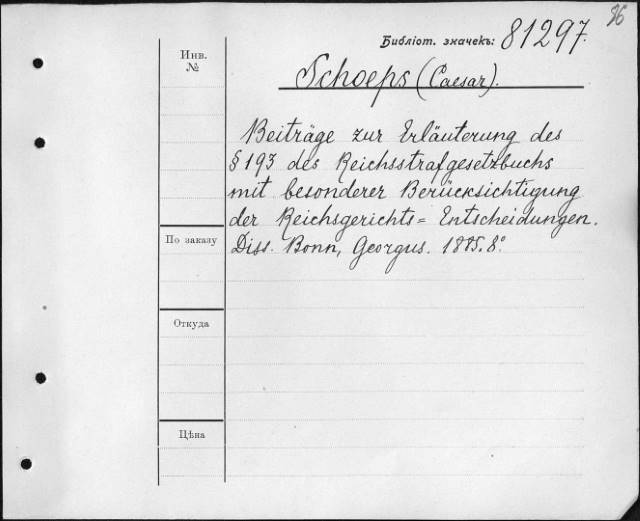 86
Библіот. значекъ: 81297.
Инв.
№
Schoeps (Caesar).
Beiträge zur Erläuterung des
§ 193 des Reichsstrafgesetzbuchs
mit besonderer Berücksichtigung
der Reichsgerichts= Entscheidungen.
По заказу
Diss. Bonn, Georgus. 1885. 8°.
Откуда
Цѣна